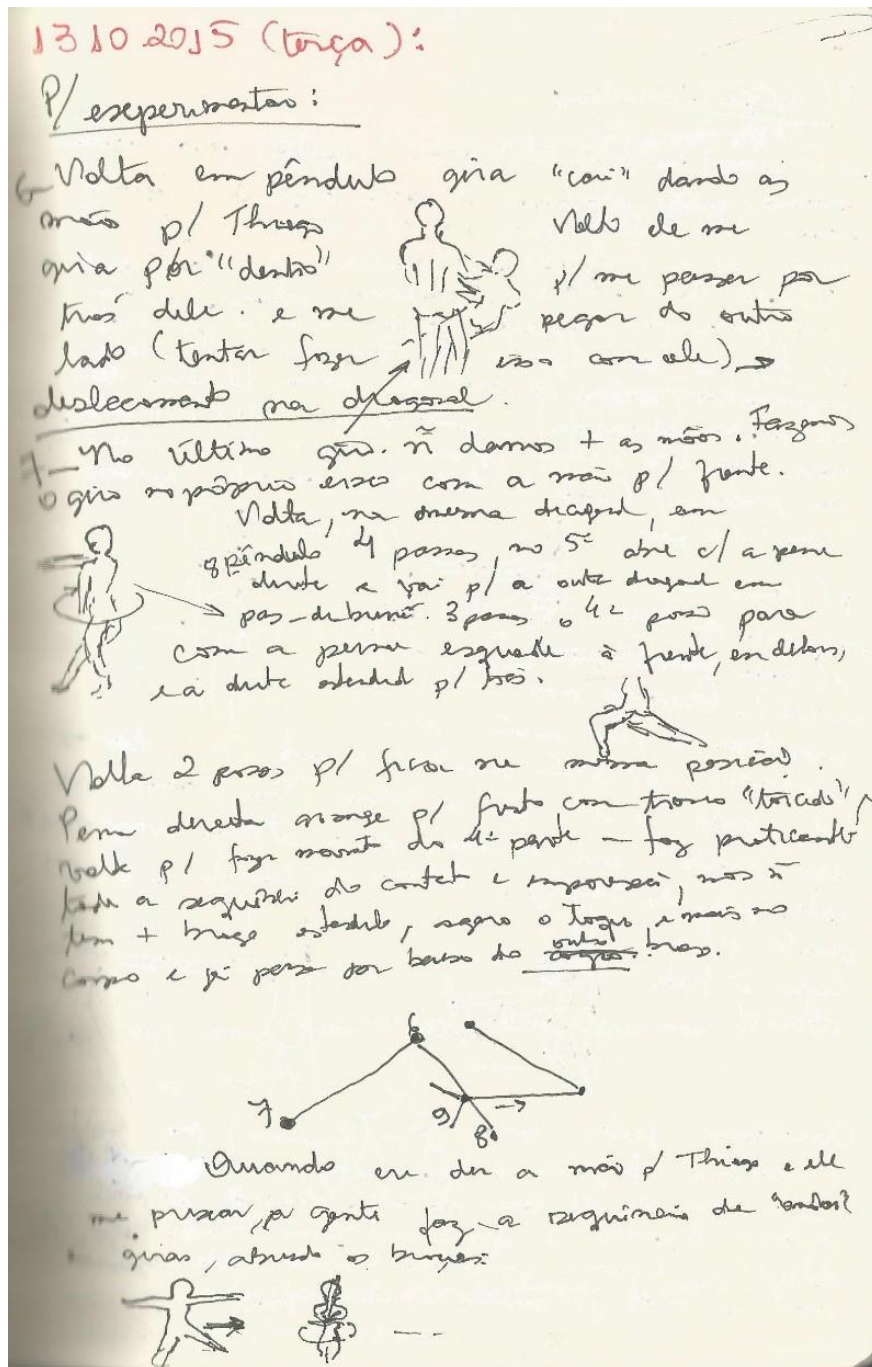 13 10 2015 (terça):
P/ experimentar:
6- Volta em pêndulo gira "cai" dando as
mão p/ Thiago Volto ele me
gira pór "dentro" p/ me passar por
trás dele. e me pegar do outro
lado (tentar fazer isso com ele) →
deslocamento na diagonal.
7- No último giro ñ damos + as mãos. Fazemos
o giro no próprio eixo com a mão p/ frente.
Volta, na mesma diagonal, em
8 pêndulo 4 passos, no 5º abre c/ a perna
direita e vai p/ a outra diagonal em
3 passos o 4º passo para
com a perna esquerda à frente, en dehors,
e a direita estendida p/ trás.
Volta 2 passos p/ ficar na mesma posição.
Perna direita p/ frente com tronco "torcido",
volta p/ fazer do 4ª parte - faz praticamente
toda a sequência do contato e improvisação, mas ñ
tem + braço estendido, agora o toque é mais no
corpo e já passa por baixo do outro braço.
6
7
9 →
8
Quando eu der a mão p/ Thiago e ele
me puxar, a gente faz a sequência de
giros, abrindo os braços: